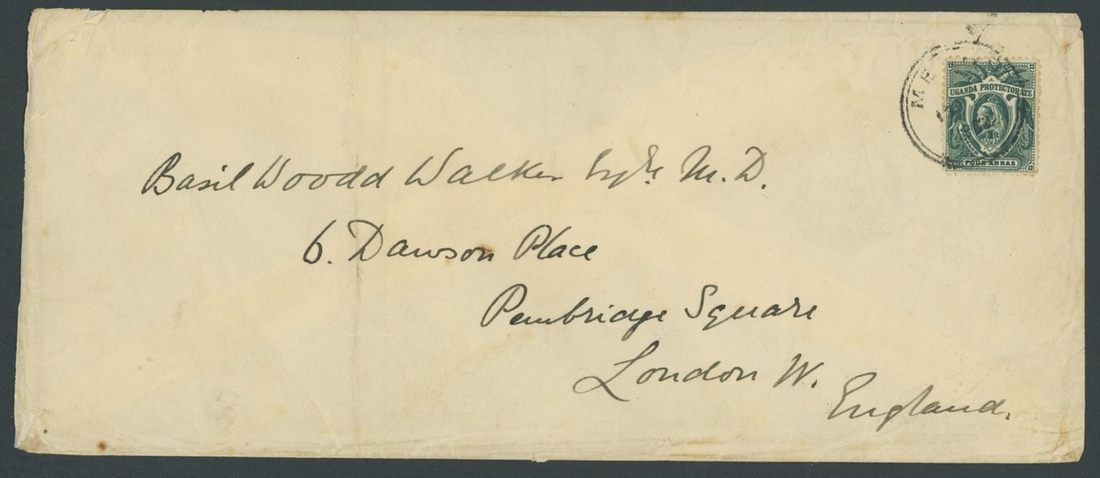 UGANDA PROTECTORATE
FOUR ANNAS
Basil Woodd Walker Esqre. M.D.
6. Dawson Place
Pembridge Square
London W.
England.